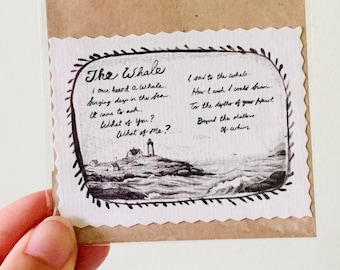 The Whale
I once heard a whale
Singing deep in the sea
It came to ask,
What of You?
What of Me?
I said to the whale
How I wish I could swim
To the depths of your heart
Beyond the shallows
Of whim